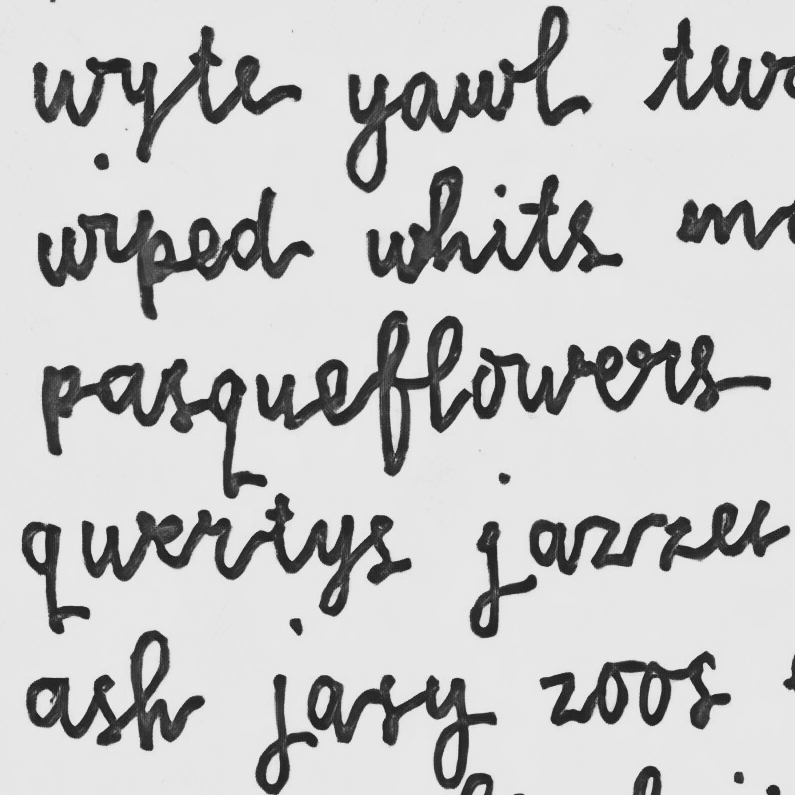 wyte yawl
wiped whits
pasqueflowers
qwertys
ash jasy zoos